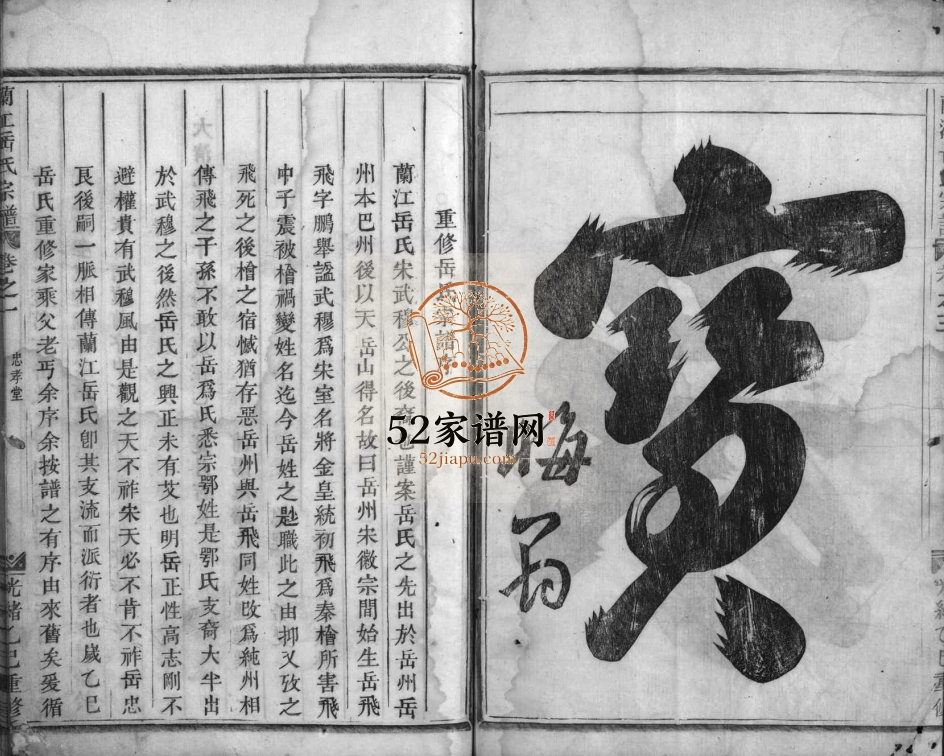 寶
晦翁
重修岳氏宗譜序
蘭江岳氏宋武穆公之後裔也謹案岳氏之先出於岳州岳
州本巴州後以天岳山得名故曰岳州宋徽宗間始生岳飛
飛字鵬舉諡武穆爲宋室名將金皇統初飛爲秦檜所害飛
中子震被檜禍變姓名迄今岳姓之尠職此之由抑又攷之
飛死之後檜之宿憾猶存惡岳州與岳飛同姓改爲純州相
傳飛之子孫不敢以岳爲氏悉宗鄂姓是鄂氏支裔大半出
於武穆之後然岳氏之興正未有艾也明岳正性高志剛不
避權貴有武穆風由是觀之天不祚宋天必不肯不祚岳忠
良後嗣一脈相傳蘭江岳氏卽其支流而派衍者也歲乙巳
岳氏重修家乘父老丐余序余按譜之有序由來舊矣爰循
蘭江岳氏宗譜
卷之一
忠孝堂
光緒乙巳重修
52家谱网
52jiapu.com